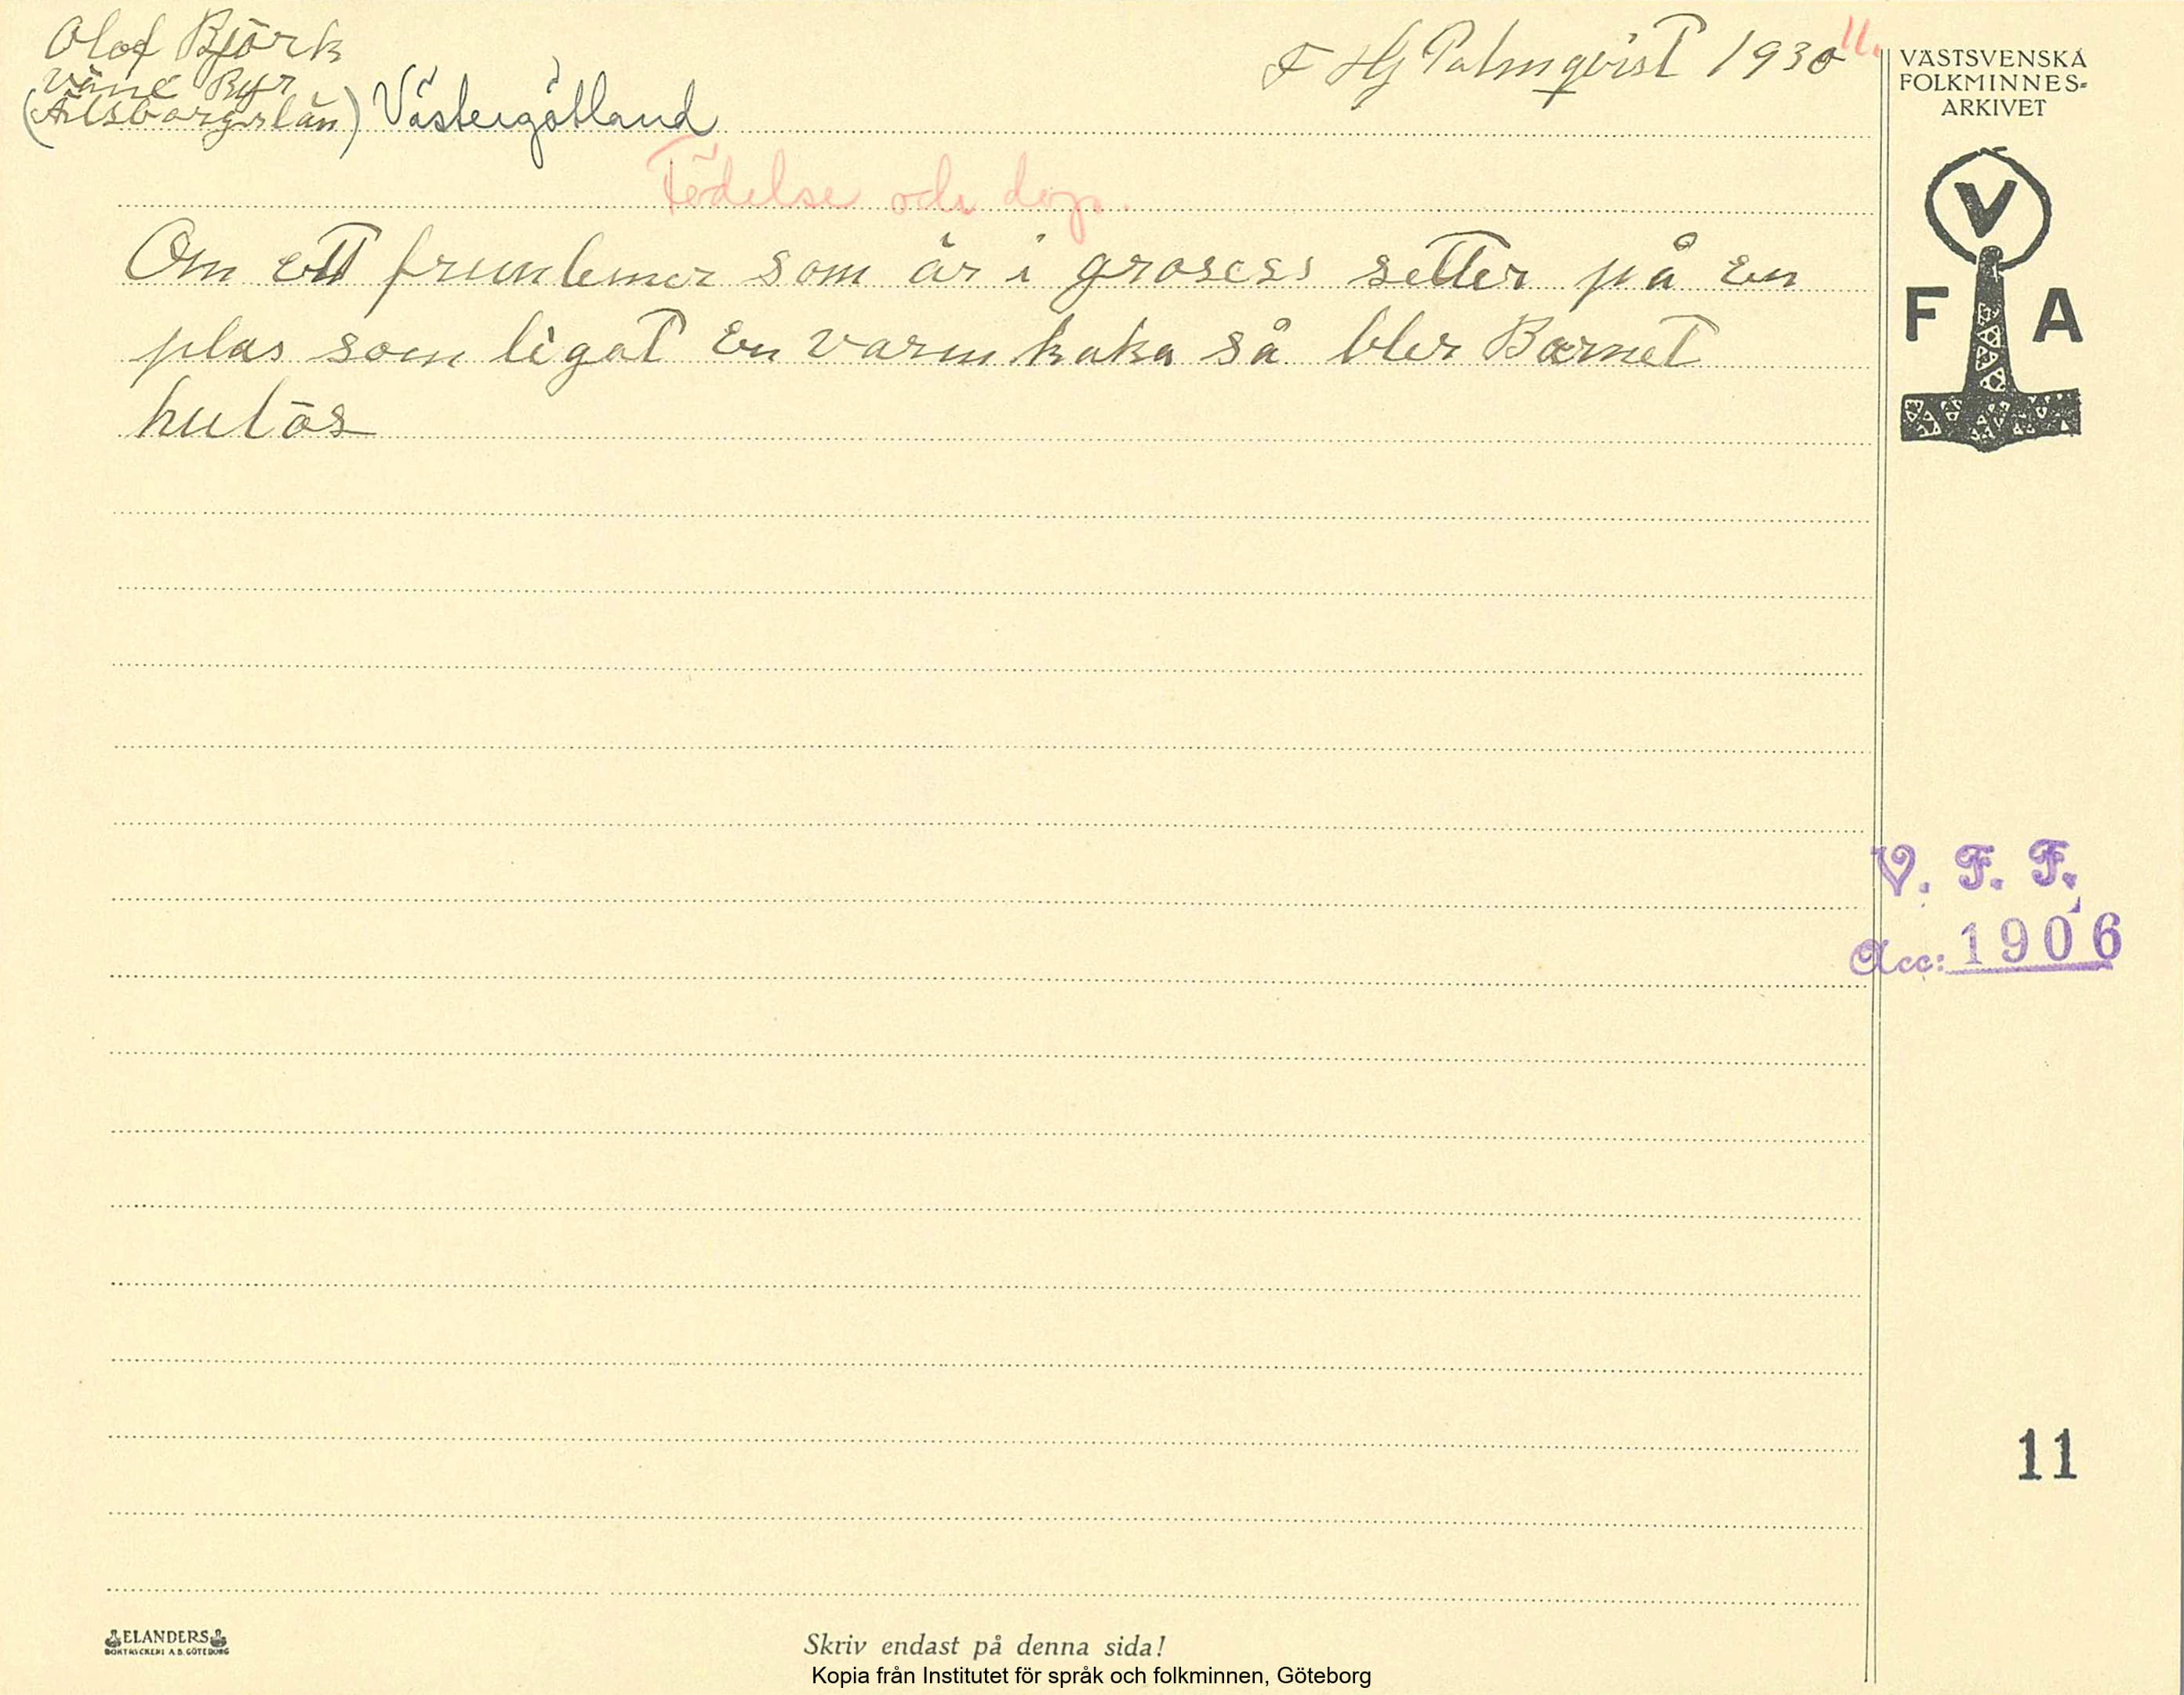 Olof Björk
Väne Ryr
(Älsborgslän) Västergötland
F Hj Palmqvist 1930
11.
VÄSTSVENSKA
FOLKMINNES-
ARKIVET
V
F A
Födelse och dop.
Om ett fruntemer som är i grosess setter på en
plas som ligat En varm kaka så bler Barnet
hulös
V. F. F.
Acc: 1906
11
ELANDERS
BOKTRYCKERI A.B. GÖTEBORG
Skriv endast på denna sida!
Kopia från Institutet för språk och folkminnen, Göteborg